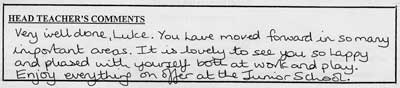 HEAD TEACHER'S COMMENTS
Very well done, Luke. You have moved forward in so many
important areas. It is lovely to see you so happy
and pleased with yourself both at work and play.
Enjoy everything on offer at the Junior School.